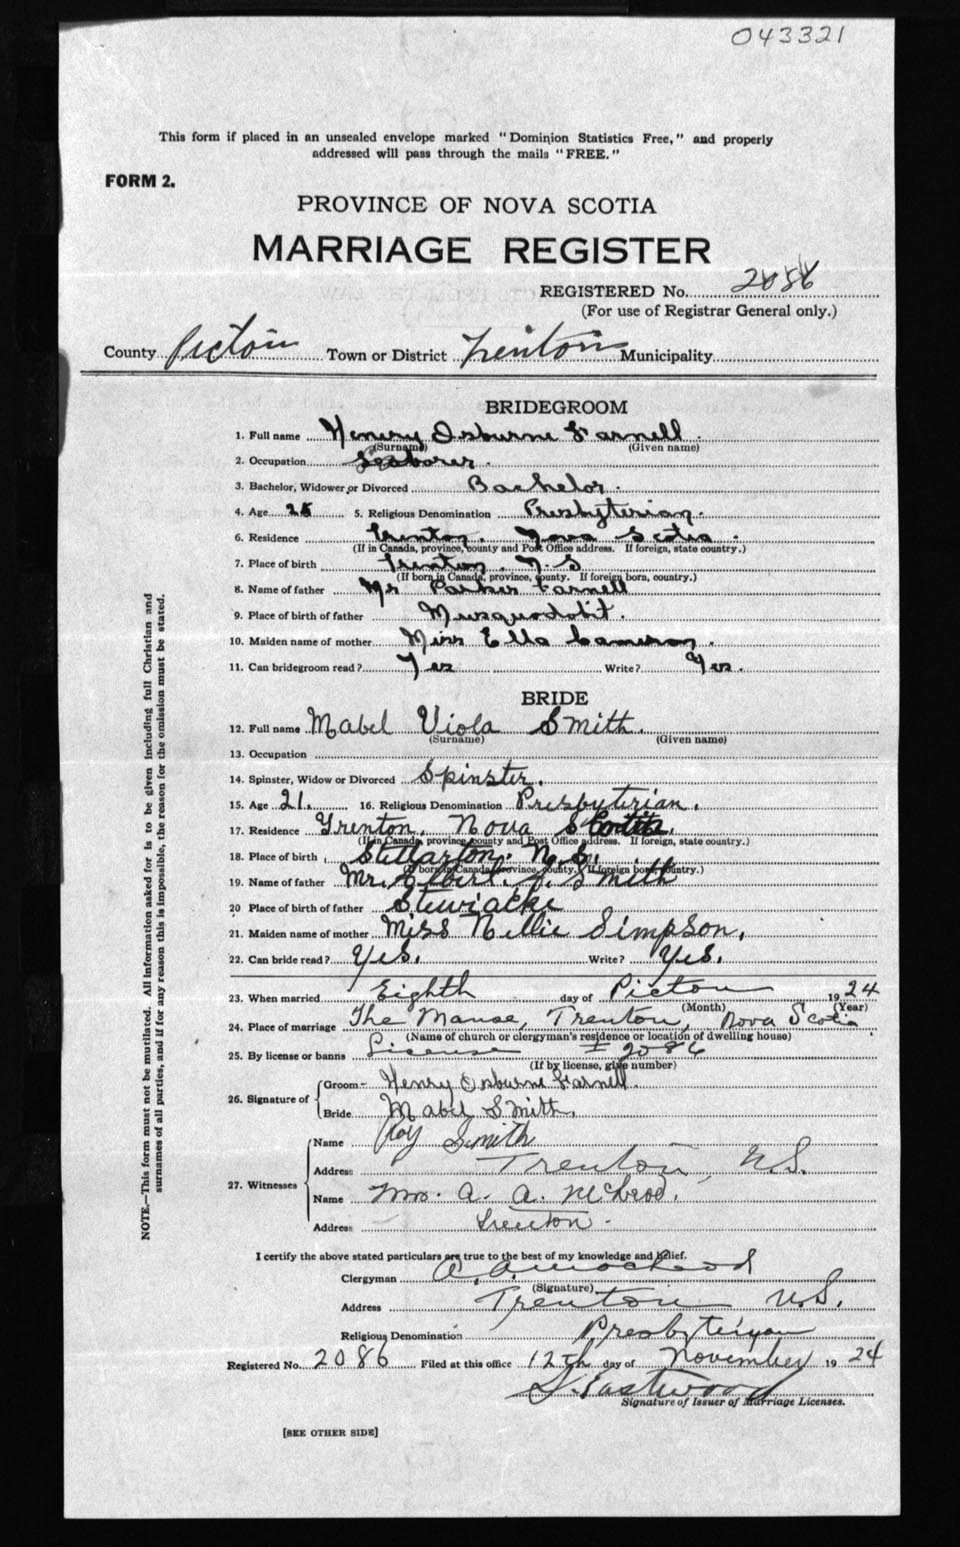 043321
This form if placed in an unsealed envelope marked "Dominion Statistics Free," and properly
addressed will pass through the mails "FREE."
FORM 2.
PROVINCE OF NOVA SCOTIA
MARRIAGE REGISTER
REGISTERED No. 2086
(For use of Registrar General only.)
County Picton Town or District Trenton Municipality
BRIDEGROOM
1. Full name Henery Osburne Farnell
(Surname) (Given name)
2. Occupation Laborer.
3. Bachelor, Widower or Divorced Bachelor.
4. Age 25 5. Religious Denomination Presbyterian.
6. Residence Trenton. Nova Scotia.
(If in Canada, province, county and Post Office address. If foreign, state country.)
7. Place of birth Trenton. N.S
(If born in Canada, province, county. If foreign born, country.)
8. Name of father Mr Parker Farnell
9. Place of birth of father Musquodobit.
10. Maiden name of mother Miss Ella Cameron.
11. Can bridegroom read? Yes Write? Yes.
BRIDE
12. Full name Mabel Viola Smith.
(Surname) (Given name)
13. Occupation
14. Spinster, Widow or Divorced Spinster.
15. Age 21. 16. Religious Denomination Presbyterian.
17. Residence Trenton. Nova Scotia.
(If in Canada, province, county and Post Office address. If foreign, state country.)
18. Place of birth Stellarton. N.S.
(If born in Canada, province, county. If foreign born, country.)
19. Name of father Mr. Elbert. J. Smith
20 Place of birth of father Stewiacke
21. Maiden name of mother Miss Nellie Simpson.
22. Can bride read? Yes. Write? Yes.
23. When married Eighth day of Picton 1924
(Month) (Year)
24. Place of marriage The Manse, Trenton, Nova Scotia.
(Name of church or clergyman's residence or location of dwelling house)
25. By license or banns License 2086
(If by license, give number)
26. Signature of
Groom Henry Osburne Farnell.
Bride Mabel Smith.
27. Witnesses
Name Roy Smith
Address Trenton, N.S.
Name Mrs. A. A. McLeod.
Address Trenton.
I certify the above stated particulars are true to the best of my knowledge and belief.
Clergyman A. A. MacLeod
(Signature)
Address Trenton N.S.
Religious Denomination Presbyteryan
Registered No. 2086 Filed at this office 12th day of November 1924
S. Eastwood
Signature of Issuer of Marriage Licenses.
[SEE OTHER SIDE]
NOTE.—This form must not be mutilated. All information asked for is to be given including full Christian and
surnames of all parties, and if for any reason this is impossible, the reason for the omission must be stated.